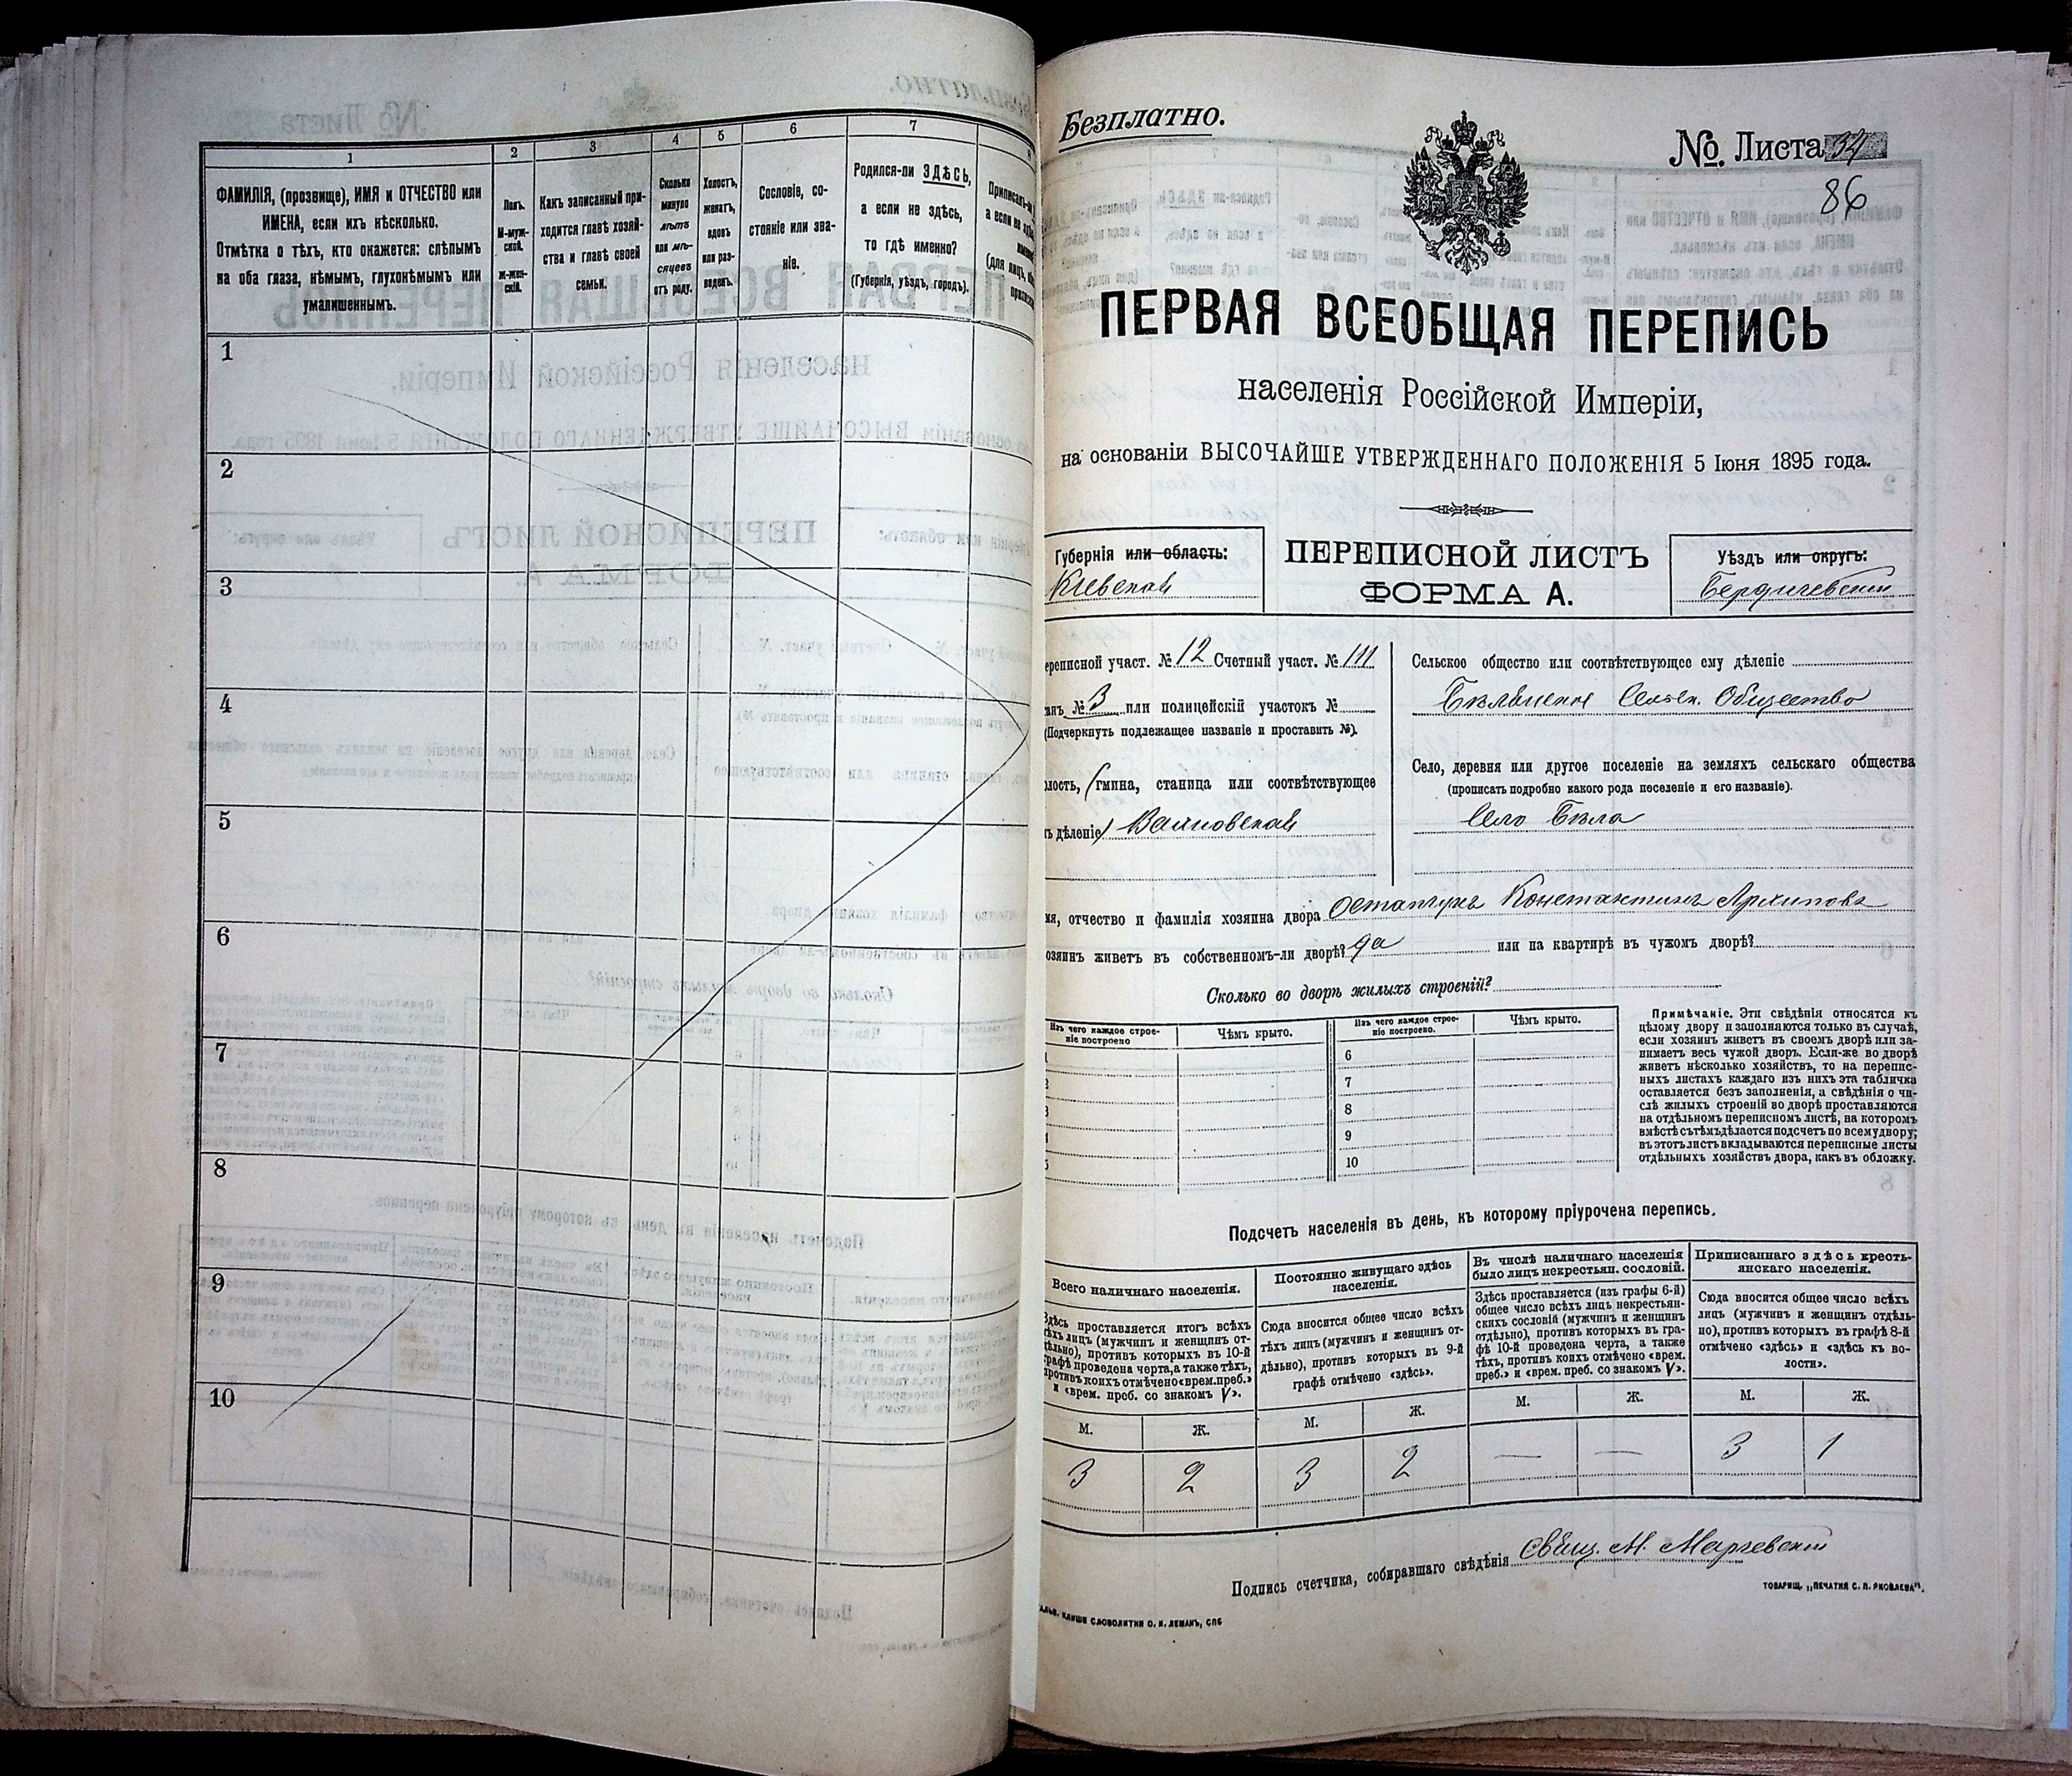 1
2
3
4
5
6
7
ФАМИЛІЯ, (прозвище), ИМЯ и ОТЧЕСТВО или
ИМЕНА, если ихъ нѣсколько.
Отмѣтка о тѣхъ, кто окажется: слѣпымъ
на оба глаза, нѣмымъ, глухонѣмымъ или
умалишеннымъ.
Полъ.
М-муж-
ской.
ж-жен-
скій.
Какъ записанный при-
ходится главѣ хозяй-
ства и главѣ своей
семьи.
Сколько
минуло
лѣтъ
или мѣ-
сяцевъ
отъ роду.
Холостъ,
женатъ,
вдовъ
или раз-
веденъ.
Сословіе, со-
стояніе или зва-
ніе.
Родился-ли ЗДѢСЬ,
а если не здѣсь,
то гдѣ именно?
(Губернія, уѣздъ, городъ).
1
2
3
4
5
6
7
8
9
10
Безплатно.
№ Листа 34
86
ПЕРВАЯ ВСЕОБЩАЯ ПЕРЕПИСЬ
населенія Россійской Имперіи,
на основаніи ВЫСОЧАЙШЕ УТВЕРЖДЕННАГО ПОЛОЖЕНІЯ 5 Іюня 1895 года.
Губернія или область:
Кіевская
ПЕРЕПИСНОЙ ЛИСТЪ
ФОРМА А.
Уѣздъ или округъ:
Бердичевскій
ереписной участ. № 12 Счетный участ. № 111
анъ № 3 или полицейскій участокъ №
(Подчеркнуть подлежащее названіе и проставить №).
лость, (гмина, станица или соотвѣтствующее
ъ дѣленіе)
Сельское общество или соотвѣтствующее ему дѣленіе
Сельск. Общество
Село, деревня или другое поселеніе на земляхъ сельскаго общества
(прописать подробно какого рода поселеніе и его названіе).
Село Бѣла
мя, отчество и фамилія хозяина двора Остапчукъ Константинъ Архиповъ
озяинъ живетъ въ собственномъ-ли дворѣ? да или на квартирѣ въ чужомъ дворѣ?
Сколько во дворѣ жилыхъ строеній?
Изъ чего каждое строе-
ніе построено
Чѣмъ крыто.
Изъ чего каждое строе-
ніе построено.
Чѣмъ крыто.
6
7
8
9
10
Примѣчаніе. Эти свѣдѣнія относятся къ
цѣлому двору и заполняются только въ случаѣ,
если хозяинъ живетъ въ своемъ дворѣ или за-
нимаетъ весь чужой дворъ. Если-же во дворѣ
живетъ нѣсколько хозяйствъ, то на перепис-
ныхъ листахъ каждаго изъ нихъ эта табличка
оставляется безъ заполненія, а свѣдѣнія о чи-
слѣ жилыхъ строеній во дворѣ проставляются
на отдѣльномъ переписномъ листѣ, на которомъ
вмѣстѣ съ тѣмъ дѣлается подсчетъ по всему двору;
въ этотъ листъ вкладываются переписные листы
отдѣльныхъ хозяйствъ двора, какъ въ обложку.
Подсчетъ населенія въ день, къ которому пріурочена перепись.
Всего наличнаго населенія.
Постоянно живущаго здѣсь
населенія.
Въ числѣ наличнаго населенія
было лицъ некрестьян. сословій.
Приписаннаго здѣсь кресть-
янскаго населенія.
Здѣсь проставляется итогъ всѣхъ
тѣхъ лицъ (мужчин и женщин от-
дѣльно), противъ которыхъ въ 10-й
графѣ проведена черта, а также тѣхъ,
противъ коихъ отмѣчено «врем. преб.»
и «врем. преб. со знакомъ V».
Сюда вносится общее число всѣхъ
тѣхъ лицъ (мужчин и женщин от-
дѣльно), противъ которыхъ въ 9-й
графѣ отмѣчено «здѣсь».
Здѣсь проставляется (изъ графы 6-й)
общее число всѣхъ лицъ некрестьян-
скихъ сословій (мужчин и женщин
отдѣльно), противъ которыхъ въ гра-
фѣ 10-й проведена черта, а также
тѣхъ, противъ коихъ отмѣчено «врем.
преб.» и «врем. преб. со знакомъ V».
Сюда вносится общее число всѣхъ
лицъ (мужчин и женщин отдѣль-
но), противъ которыхъ въ графѣ 8-й
отмѣчено «здѣсь» и «здѣсь къ во-
лости».
М. Ж. М. Ж. М. Ж. М. Ж.
3 2 3 2 — — 3 1
Подпись счетчика, собиравшаго свѣдѣнія Свящ. М.
ТОВАРИЩ. „ПЕЧАТНЯ С. П. ЯКОВЛЕВА“.
КЛИШЕ СЛОВОЛИТНИ О. И. ЛЕМАНЪ, СПБ